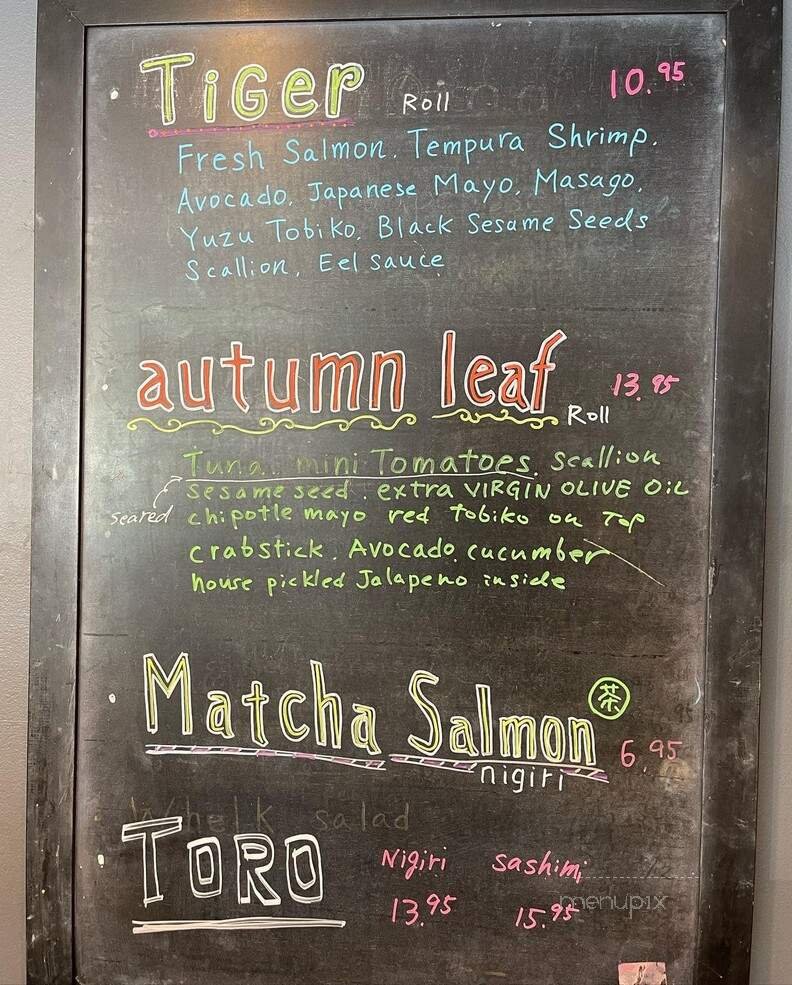 Tiger Roll 10.95
Fresh Salmon. Tempura Shrimp.
Avocado. Japanese Mayo. Masago.
Yuzu Tobiko. Black Sesame Seeds
Scallion. Eel sauce
autumn leaf Roll 13.95
Tuna. mini Tomatoes. scallion
sesame seed. extra VIRGIN OLIVE OIL
seared chipotle mayo red Tobiko on Top
crabstick. Avocado. cucumber
house pickled Jalapeno inside
Matcha Salmon 茶 6.95
nigiri
Whelk salad
TORO Nigiri sashimi
13.95 15.95
menupix